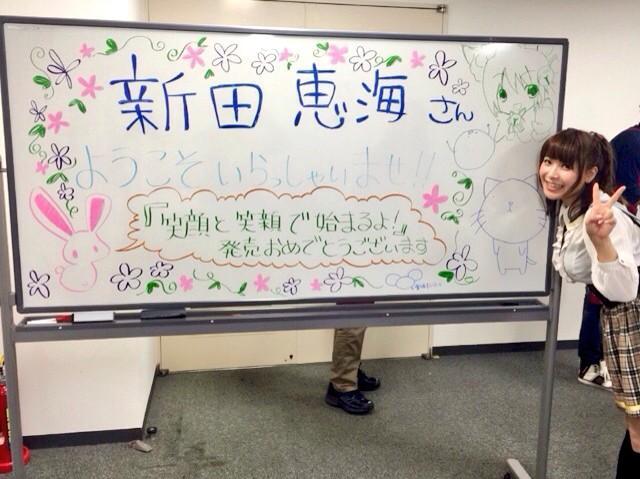 新田 恵海 さん
ようこそ いらっしゃいませ!!
『笑顔と笑顔で始まるよ!』
発売おめでとうございます